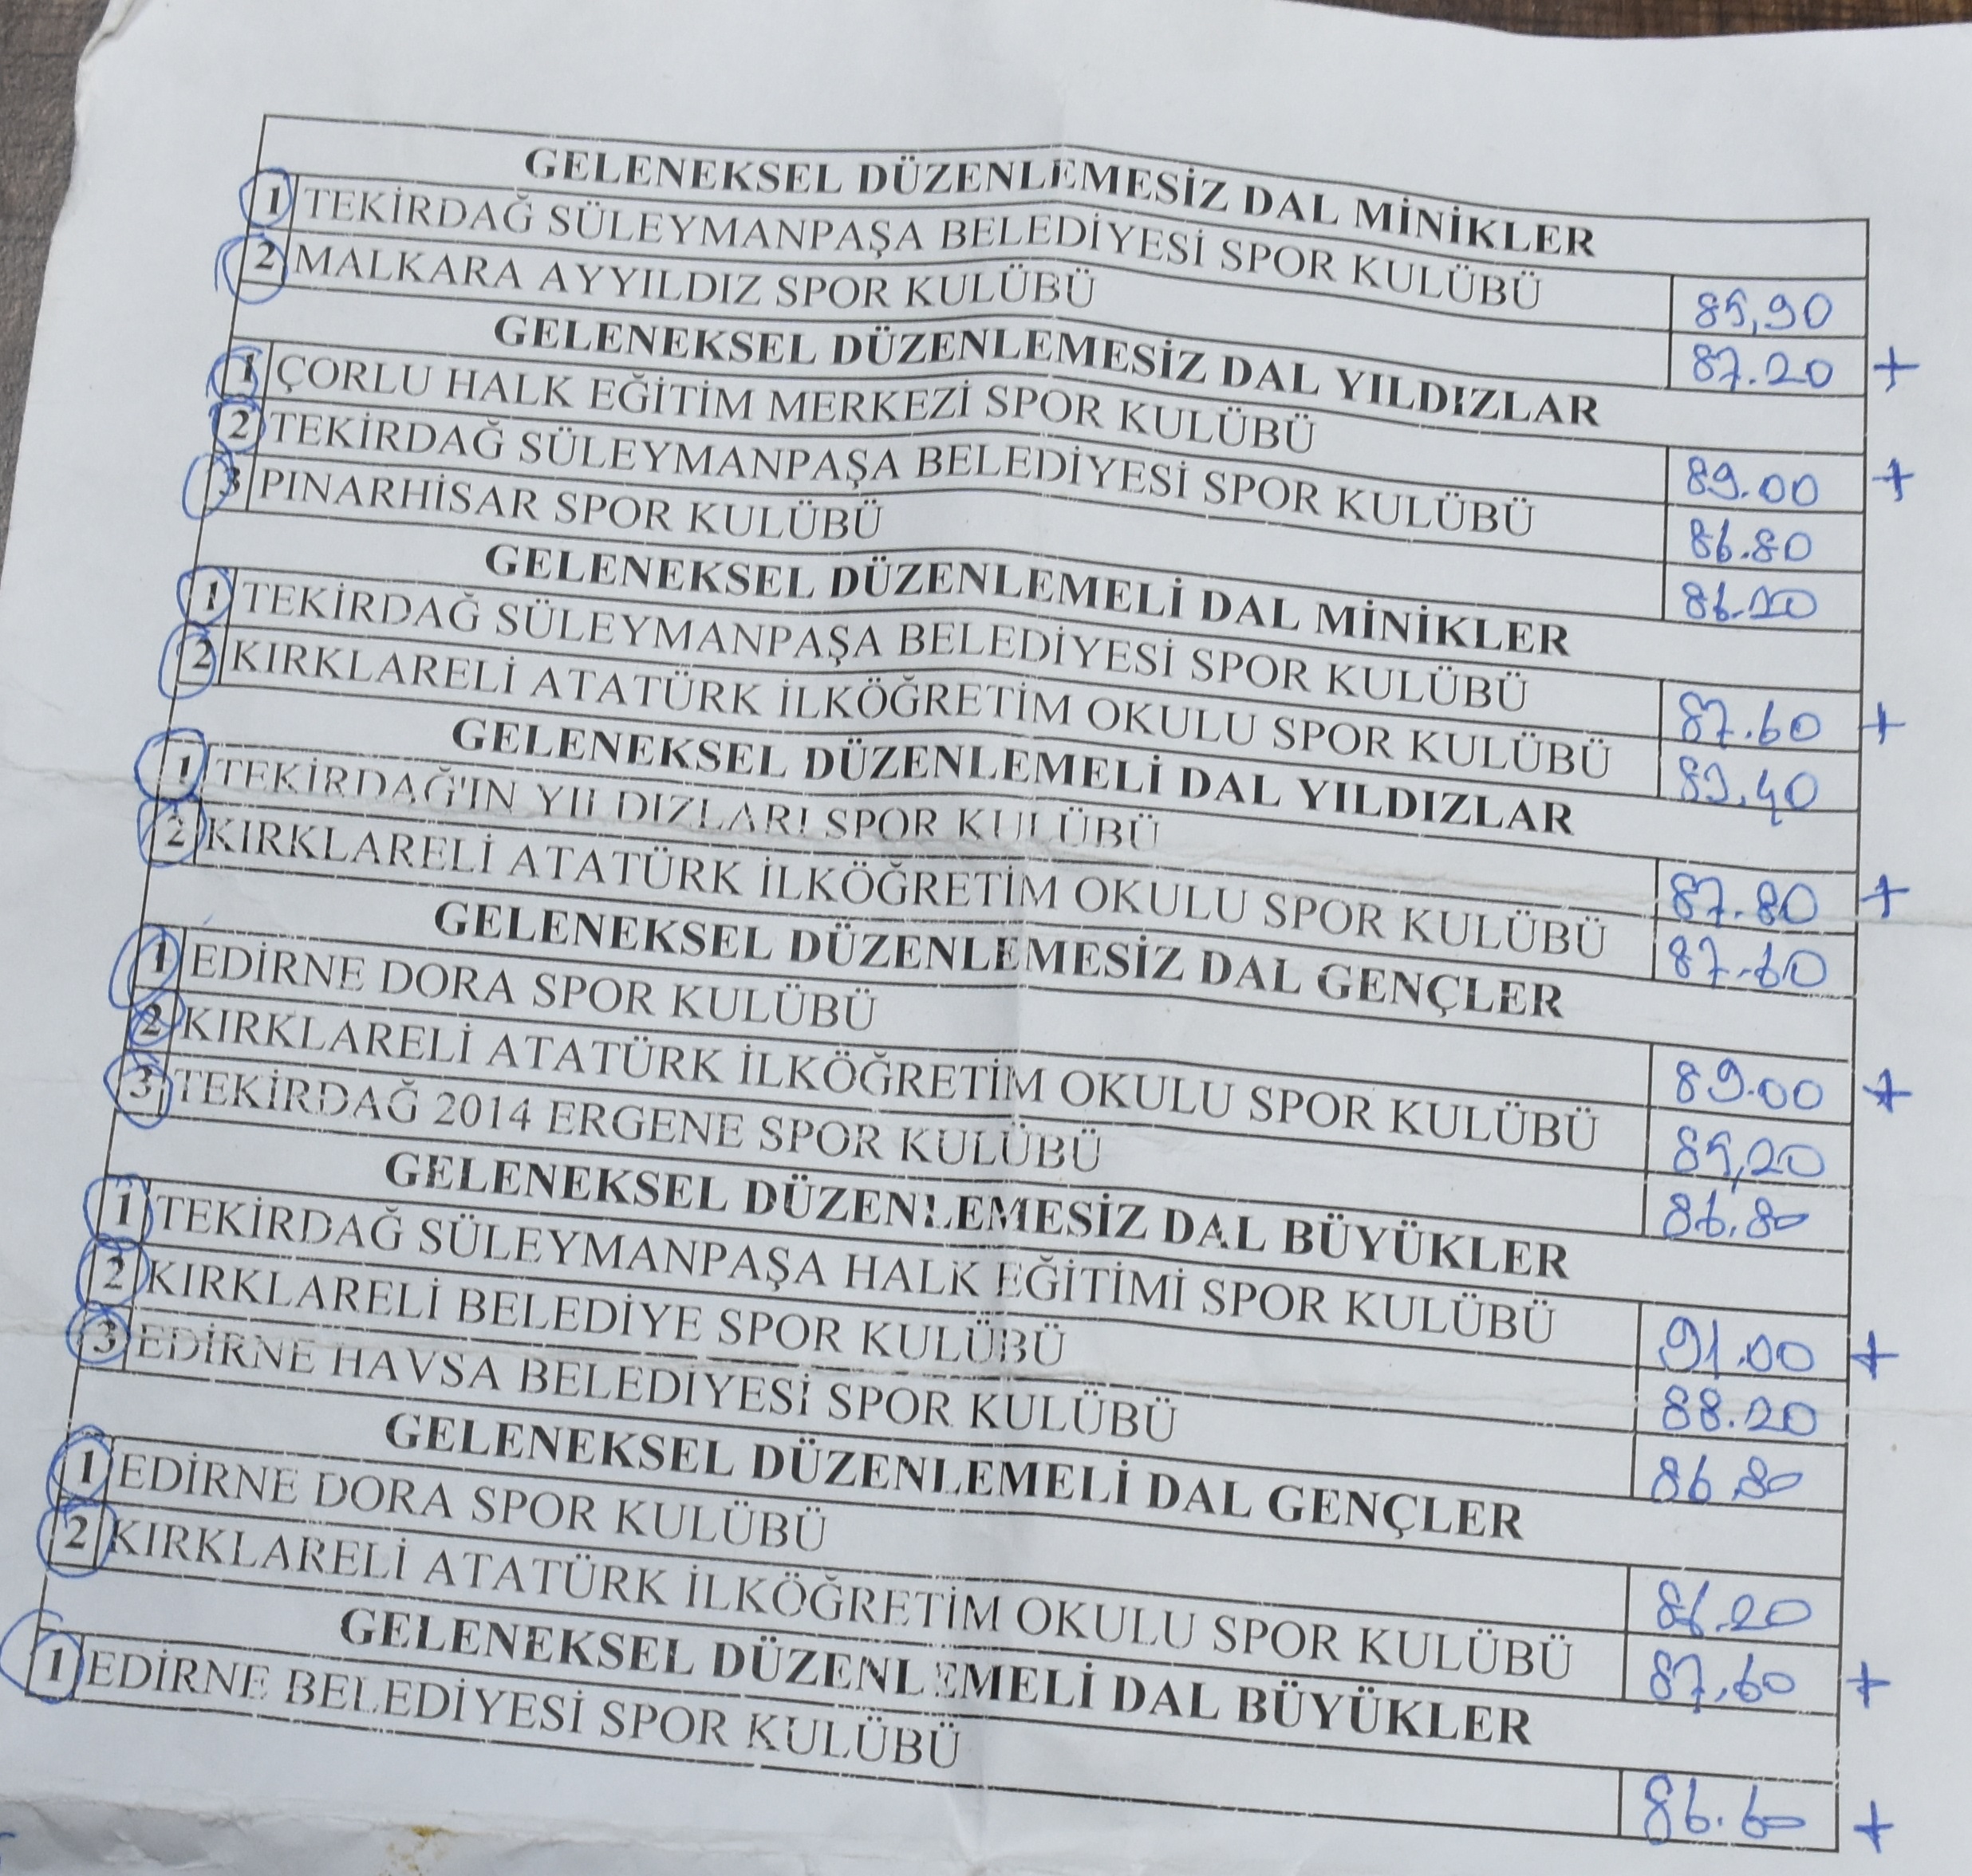 GELENEKSEL DÜZENLEMESİZ DAL MİNİKLER
1 TEKİRDAĞ SÜLEYMANPAŞA BELEDİYESİ SPOR KULÜBÜ 85,90
2 MALKARA AYYILDIZ SPOR KULÜBÜ 87.20 +
GELENEKSEL DÜZENLEMESİZ DAL YILDIZLAR
1 ÇORLU HALK EĞİTİM MERKEZİ SPOR KULÜBÜ 89.00 +
2 TEKİRDAĞ SÜLEYMANPAŞA BELEDİYESİ SPOR KULÜBÜ 86.80
3 PINARHİSAR SPOR KULÜBÜ
GELENEKSEL DÜZENLEMELİ DAL MİNİKLER
1 TEKİRDAĞ SÜLEYMANPAŞA BELEDİYESİ SPOR KULÜBÜ 87.60 +
2 KIRKLARELİ ATATÜRK İLKÖĞRETİM OKULU SPOR KULÜBÜ
GELENEKSEL DÜZENLEMELİ DAL YILDIZLAR
1 TEKİRDAĞ'IN YILDIZLARI SPOR KULÜBÜ 87.80 +
2 KIRKLARELİ ATATÜRK İLKÖĞRETİM OKULU SPOR KULÜBÜ 87.60
GELENEKSEL DÜZENLEMESİZ DAL GENÇLER
1 EDİRNE DORA SPOR KULÜBÜ 89.00 +
2 KIRKLARELİ ATATÜRK İLKÖĞRETİM OKULU SPOR KULÜBÜ 85,20
3 TEKİRDAĞ 2014 ERGENE SPOR KULÜBÜ 86.80
GELENEKSEL DÜZENLEMESİZ DAL BÜYÜKLER
1 TEKİRDAĞ SÜLEYMANPAŞA HALK EĞİTİMİ SPOR KULÜBÜ 91.00 +
2 KIRKLARELİ BELEDİYE SPOR KULÜBÜ 88.20
3 EDİRNE HAVSA BELEDİYESİ SPOR KULÜBÜ 86.80
GELENEKSEL DÜZENLEMELİ DAL GENÇLER
1 EDİRNE DORA SPOR KULÜBÜ 86.20
2 KIRKLARELİ ATATÜRK İLKÖĞRETİM OKULU SPOR KULÜBÜ 87.60 +
GELENEKSEL DÜZENLEMELİ DAL BÜYÜKLER
1 EDİRNE BELEDİYESİ SPOR KULÜBÜ 86.60 +